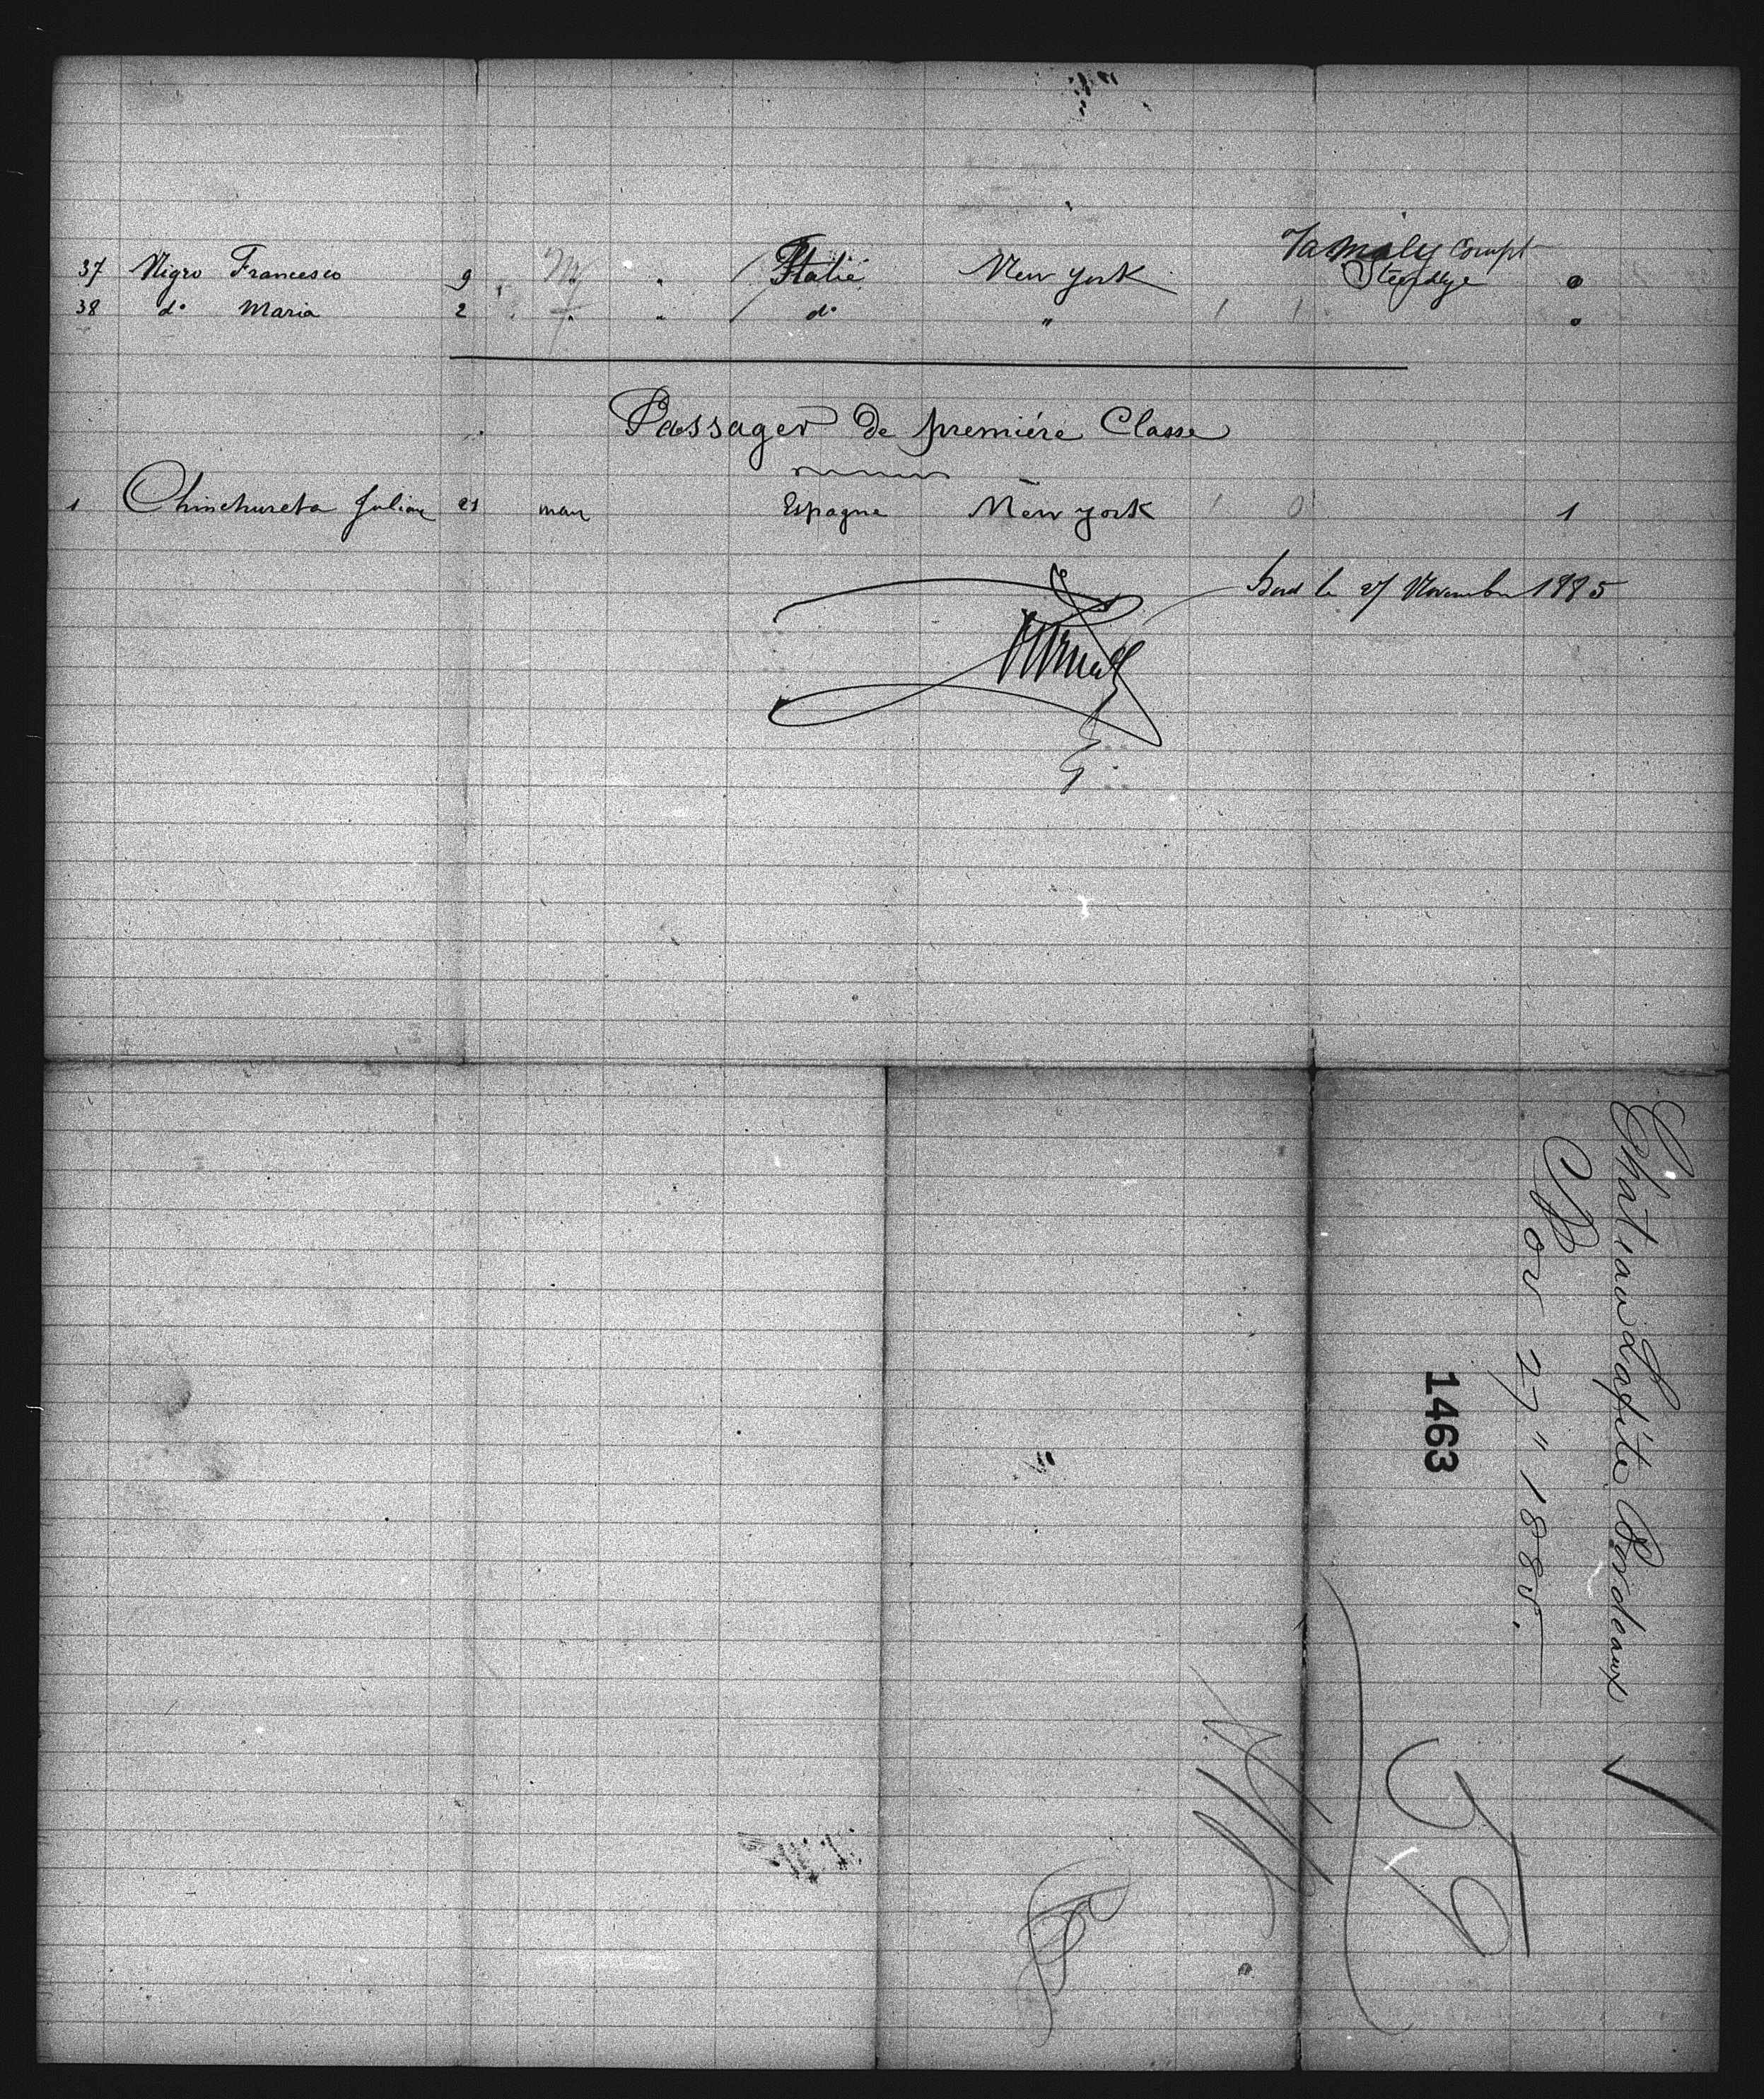 Family Compt
37 Nigro Francesco 9 " M " / Italie New york Steerage 0
38 do Maria 2 " f " / do " / / 0
Passager de première Classe
1 Chinchureta Julian 21 man Espagne New york / 0 1
Bord le 27 Novembre 1885
Chateau Lafite Bordeaux
Nov 27 " 1885.
1463